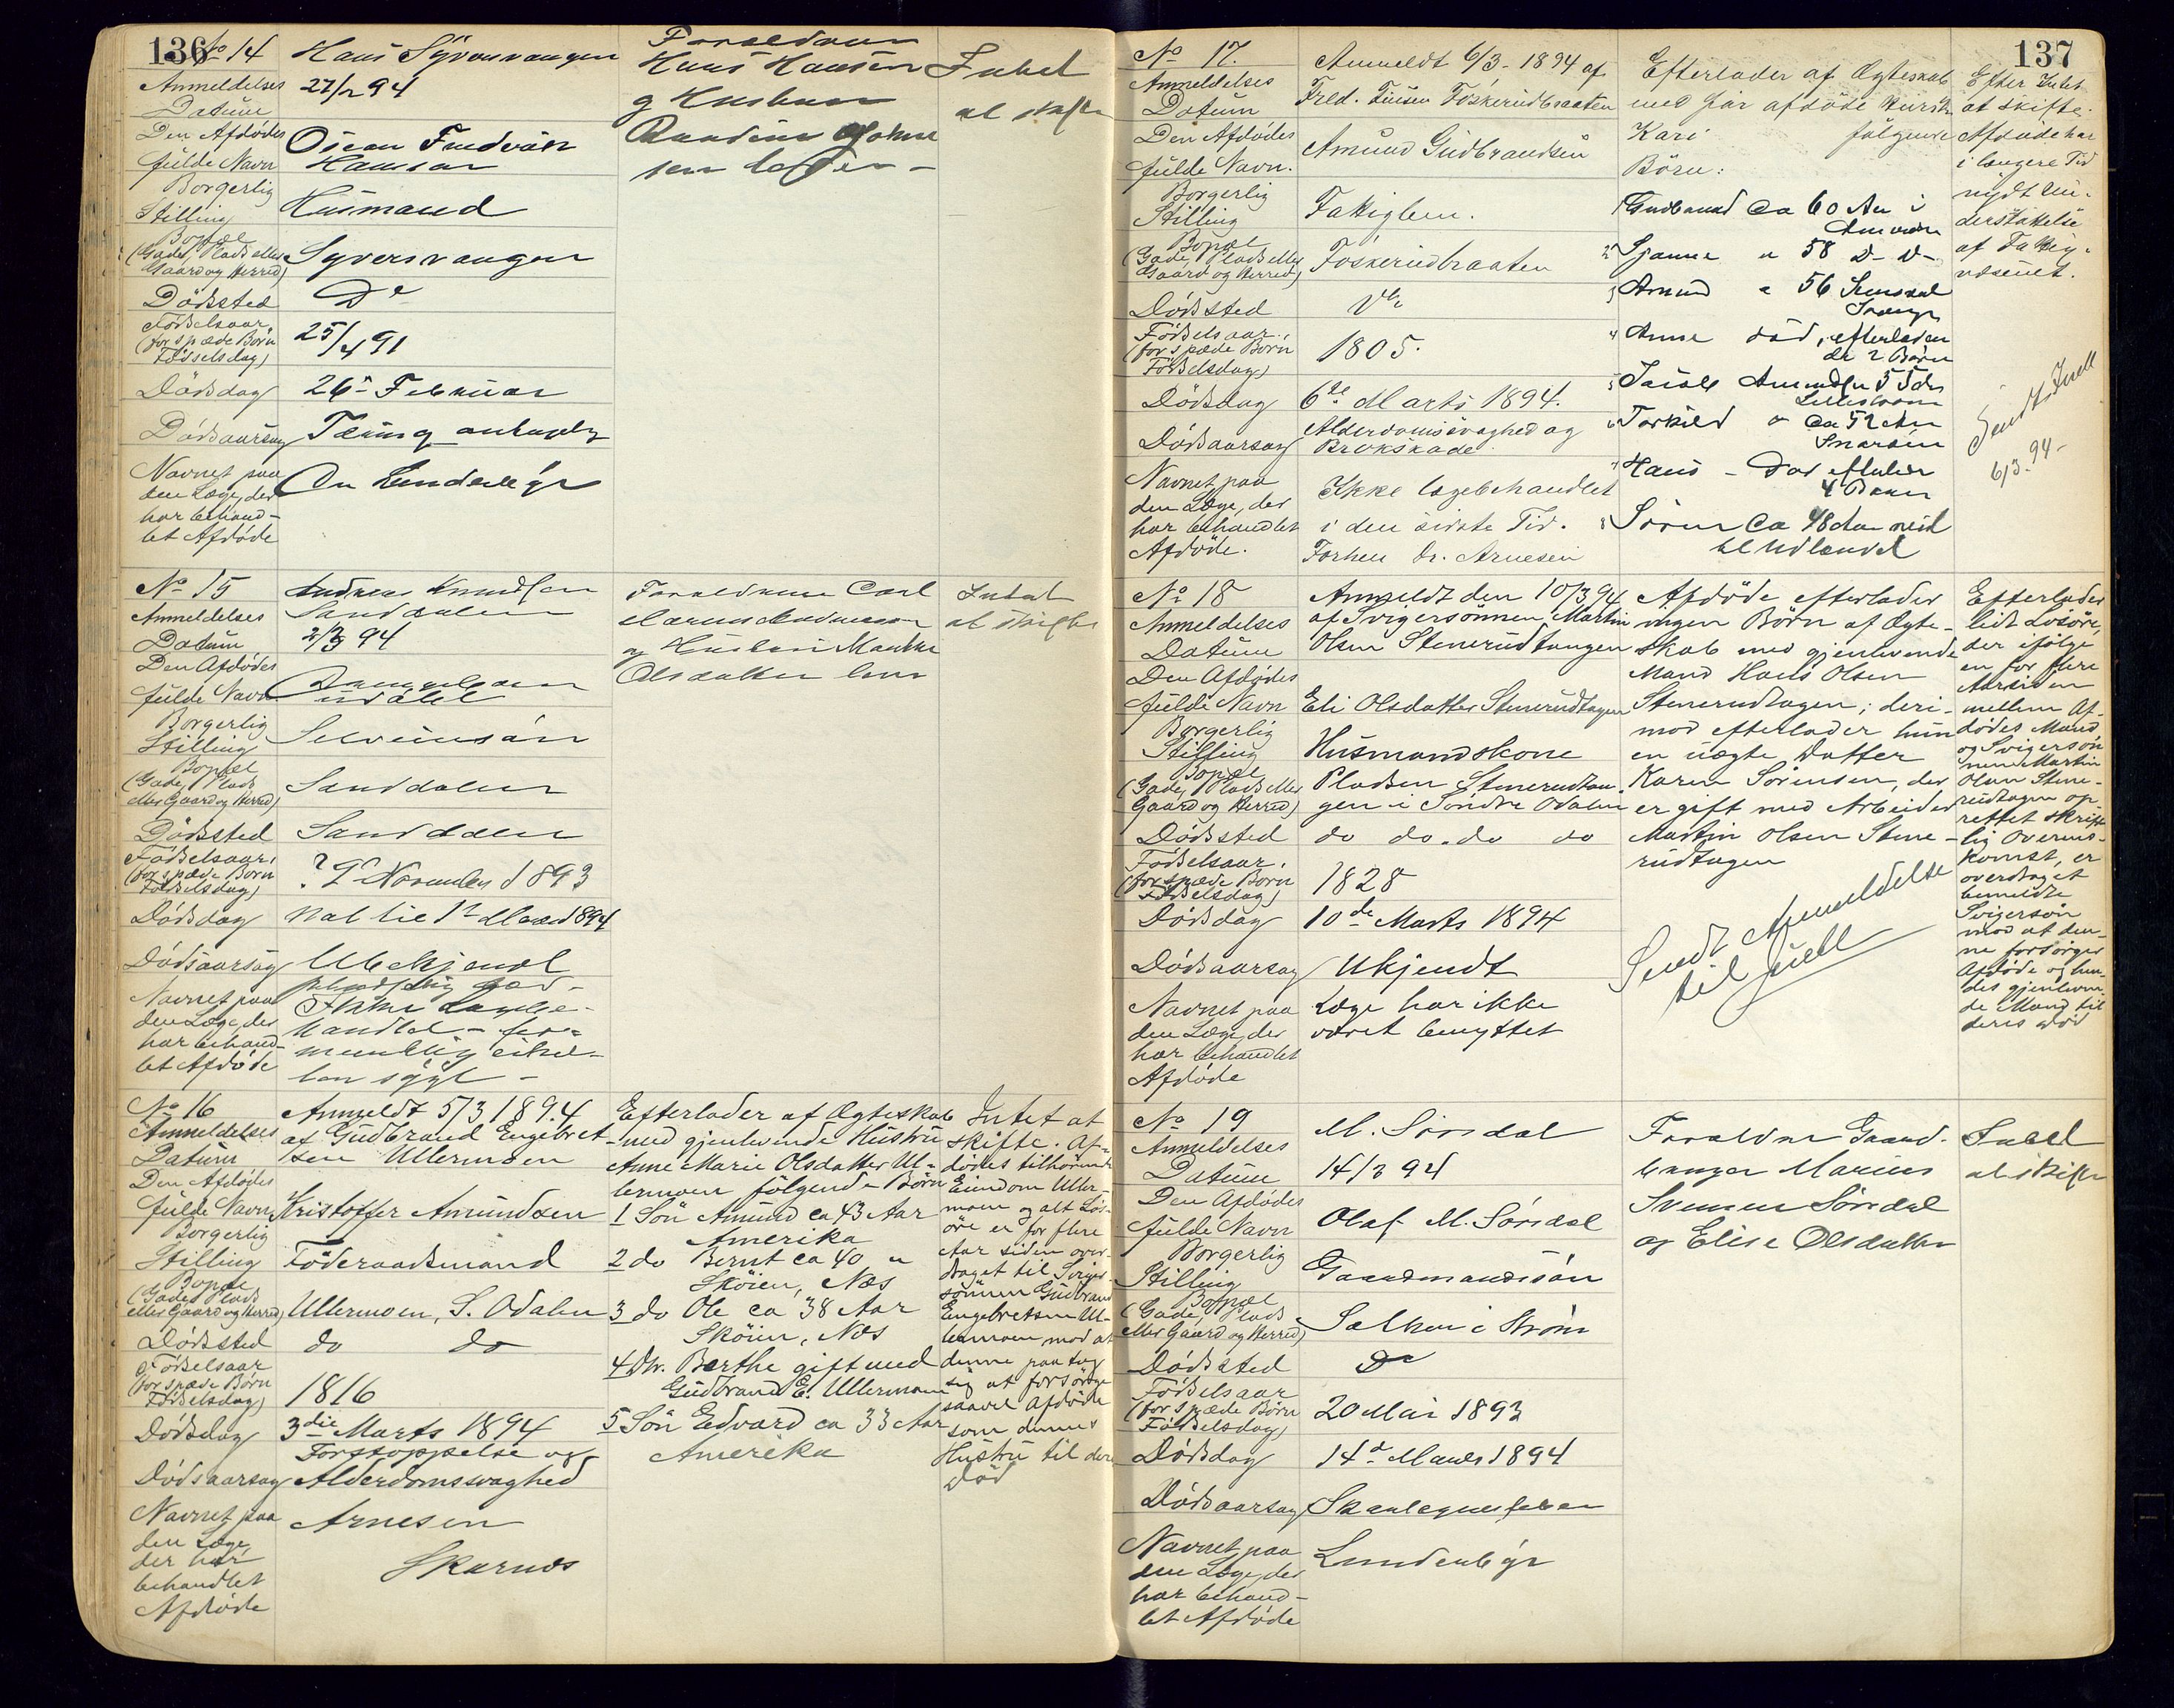 136
No 14
Anmeldelses
Datum
Hans Syversvangen
27/2 94
Den Afdødes
fulde Navn
Oscar Fredvik
Hansen
Borgerlig
Stilling
Husmand
Bopæl
(Gade, Plads eller
Gaard og Herred)
Syversvangen
Dødssted
Do
Fødselsaar,
(for spæde Børn
Fødselsdag)
25/4 91
Dødsdag
26 Februar
Dødsaarsag
Navnet paa
den Læge, der
har behand-
let Afdøde
Forældrene
Hans Hansen
og Hustru
Intet
at skifte
No 15
Anmeldelses
Datum
Andreas Knudsen
Sanddalen
2/3 94
Den Afdødes
fulde Navn
udøbt
Borgerlig
Stilling
Bopæl
(Gade, Plads
eller Gaard og Herred)
Sanddalen
Dødssted
Sanddalen
Fødselsaar,
(for spæde Børn
Fødselsdag)
November 1893
Dødsdag
Nat til 1 Marts 1894
Dødsaarsag
Ubekjendt
Navnet paa
den Læge, der
har behand-
let Afdøde
Ikke Lægebe-
handlet
Forældrene Carl
og Hustru Marthe
Olsdatter
Intet
at skifte
No 16
Anmeldelses
Datum
Anmeldt 5/3 1894
af Gudbrand Engebret-
sen Ullermoen
Den Afdødes
fulde Navn
Kristoffer Amundsen
Borgerlig
Stilling
Föderaadsmand
Bopæl
(Gade, Plads
eller Gaard og Herred)
Ullermoen, S. Odalen
Dødssted
do do
Fødselsaar
(for spæde Børn
Fødselsdag)
1816
Dødsdag
3die Marts 1894
Dødsaarsag
Forstoppelse og
Alderdomsvaghed
Navnet paa
den Læge,
der har
behandlet
Afdøde
Arnesen
Skarnes
Efterlader af Ægteskab
med gjenlevende Hustru
Anne Marie Olsdatter Ul-
lermoen følgende Børn
1 Sön Amund ca 43 Aar
Amerika
2 do Bernt ca 40 "
Sköien, Næs
3 do Ole ca 38 Aar
Sköien, Næs
4 Dtr. Berthe gift med
Gudbrand E. Ullermoen
5 Sön Edvard ca 33 Aar
Amerika
Intet at
skifte. Af-
dødes tilhørende
Eiendom Uller-
moen og alt Lös-
öre er for flere
Aar siden over-
draget til Sviger-
sönnen Gudbrand
Engebretsen Ul-
lermoen mod at
denne paa tog
sig at forsörge
saavel Afdøde
som dennes
Hustru til deres
Død
137
No 17.
Anmeldelses
Datum
Anmeldt 6/3 - 1894 af
Fred. Foskerudbraaten
Den Afdødes
fulde Navn.
Amund Gudbrandsen
Borgerlig
Stilling
Fattiglem.
Bopæl
(Gade, Plads eller
Gaard og Herred)
Foskerudbraaten
Dødssted
Fødselsaar,
(for spæde Børn
Fødselsdag)
1805.
Dødsdag
6te Marts 1894.
Dødsaarsag
Alderdomssvaghed og
Brokskade
Navnet paa
den Læge, der
har behandlet
Afdøde.
Ikke lægebehandlet
i den sidste Tid.
Forhen Dr. Arnesen
Efterlader af Ægteskab
med før afdøde Hustru
Kari følgende
Börn:
1 Gudbrand ca 60 Aar i
Amerika
58
3 Amund 56
4 Anne død, efterladen
de 2 Børn
5
6 Torkild ca 52 Aar
7 Hans - Død
4 Børn
8 Sören ca 48 Aar reist
til Udlandet
Efter Intet
at skifte.
Afdøde har
i længere Tid
nydt Un-
derstøttelse
af Fattig-
væsenet.
Sendt Juell
6/3 94-
No 18
Anmeldelses
Datum
Anmeldt den 10/3 94
af Svigersönnen Martin
Olsen Stenerudtangen
Den Afdødes
fulde Navn
Eli Olsdatter Stenerudtagen
Borgerlig
Stilling
Husmandskone
Bopæl
(Gade, Plads eller
Gaard og Herred)
Pladsen Stenerudtan
gen i Söndre Odalen
Dødssted
do do. do do
Fødselsaar.
(for spæde Børn
Fødselsdag)
1828
Dødsdag
10de Marts 1894
Dødsaarsag
Ukjendt
Navnet paa
den Læge, der
har behandlet
Afdøde
Læge har ikke
været benyttet
Afdöde efterlader
ingen Börn af Ægte-
skab med gjenlevende
Mand Hans Olsen
Stenerudtagen; deri-
mod efterlader hun
en uægte Datter
Karen Sörensen, der
er gift med Arbeider
Martin Olsen Stene-
rudtagen
Sendt Anmeldelse
til Juell
Efterlades
lidt Lösöre,
der ifölge
en for flere
Aar siden
mellem Af-
dödes Mand
og Svigersön
nen Martin
Olsen Stene-
rudtagen op-
rettet skrift
lig Overens-
komst, er
overdraget
bemeldte
Svigersön
mod at den-
ne forsörger
Afdöde og hen-
des gjenleven-
de Mand til
deres Död
No 19
Anmeldelses
Datum
M. Sörsdal
14/3 94
Den Afdødes
fulde Navn
Olaf M. Sörsdal
Borgerlig
Stilling
Gaardmandssön
Bopæl
(Gade, Plads
eller Gaard og Herred)
i Ström
Dødssted
Do
Fødselsaar
(for spæde Børn
Fødselsdag)
20 Mai 1893
Dødsdag
14d Marts 1894
Dødsaarsag
Skarlagensfeber
Navnet paa
den Læge, der
har behand-
let Afdøde
Forældre Gaard-
bruger Marius
Svensen Sörsdal
og Elise Olsdatter
Intet
at skifte